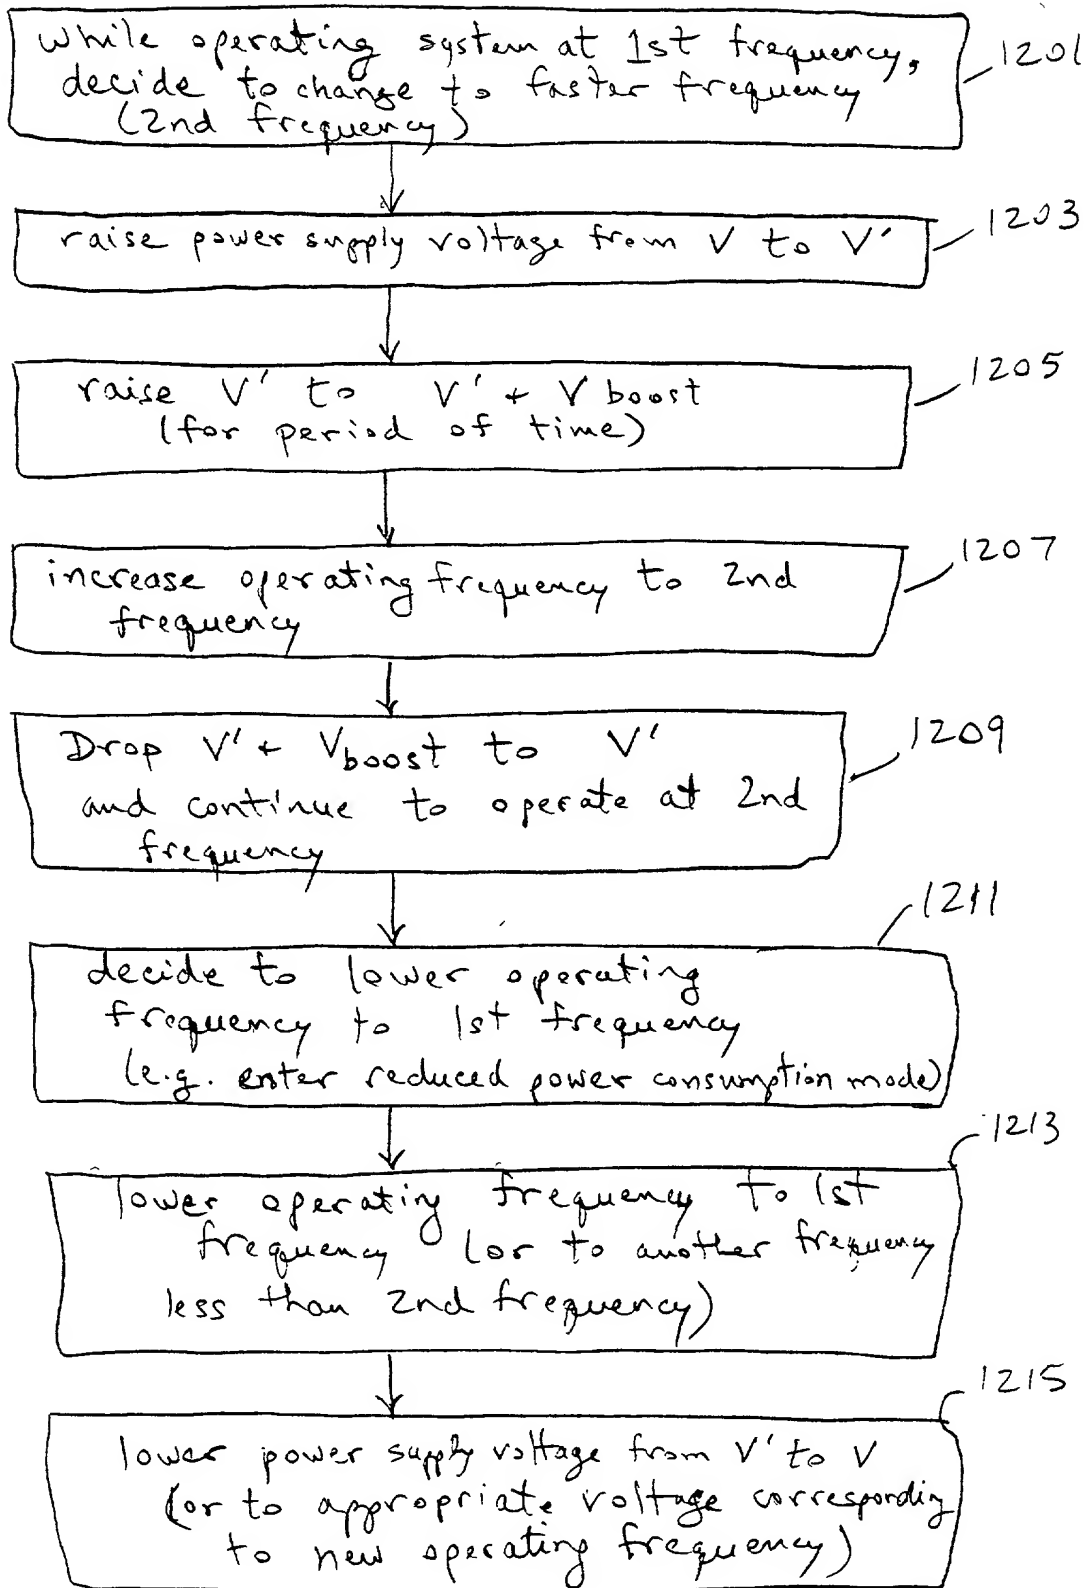 while operating system at 1st frequency, 1201
decide to change to faster frequency
(2nd frequency)
raise power supply voltage from V to V' 1203
raise V' to V' + V boost 1205
(for period of time)
increase operating frequency to 2nd 1207
frequency
Drop V' + Vboost to V' 1209
and continue to operate at 2nd
frequency
1211
decide to lower operating
frequency to 1st frequency
(e.g. enter reduced power consumption mode)
1213
lower operating frequency to 1st
frequency (or to another frequency
less than 2nd frequency)
1215
lower power supply voltage from V' to V
(or to appropriate voltage corresponding
to new operating frequency)